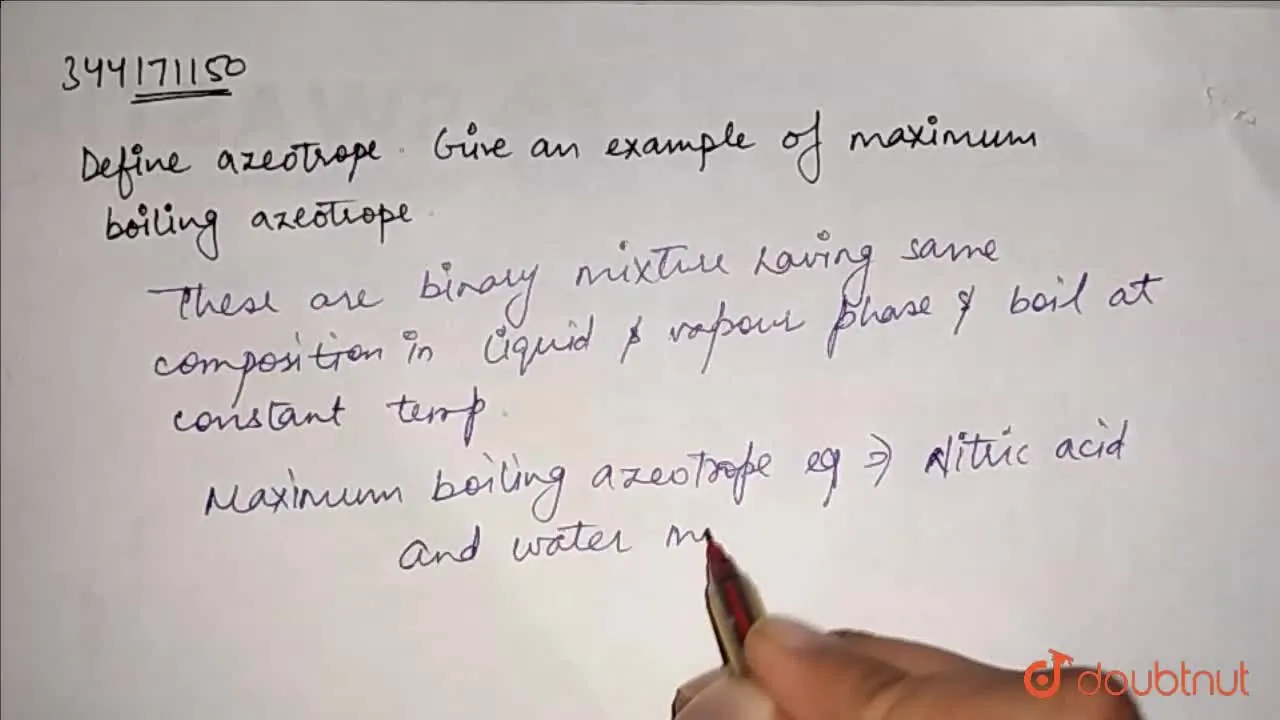 344171150
Define azeotrope. Give an example of maximum
boiling azeotrope.
These are binary mixture having same
composition in liquid & vapour phase & boil at
constant temp.
Maximum boiling azeotrope eg ⇒ Nitric acid
and water m
doubtnut